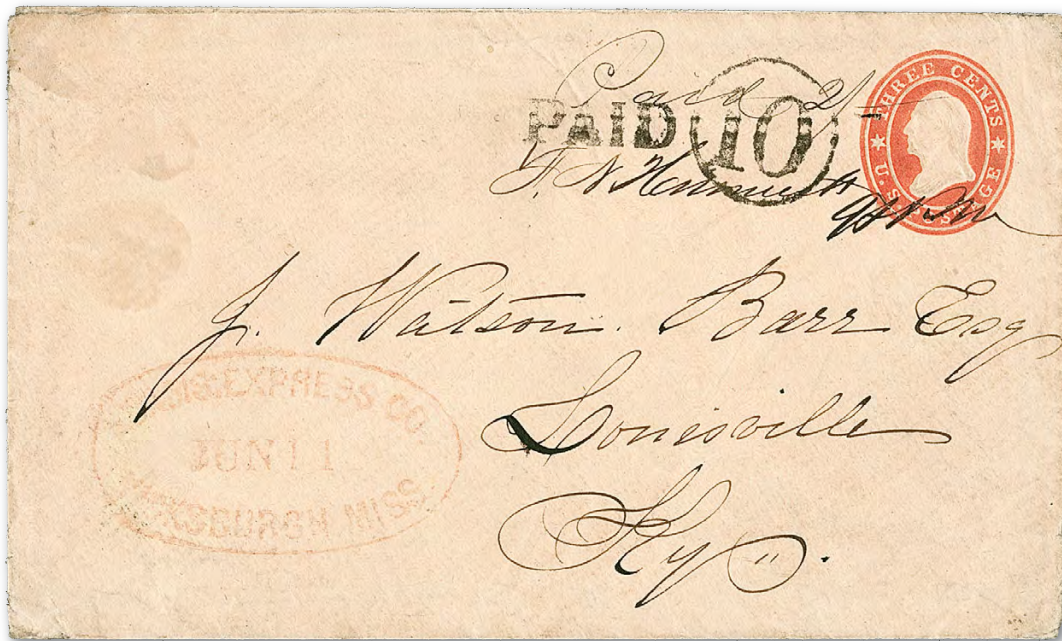 Paid 2/-
PAID 10
THREE CENTS
U.S. POSTAGE
J. Watson Barr Esq
Louisville
Ky.
EXPRESS CO.
JUN 11
VICKSBURGH MISS.